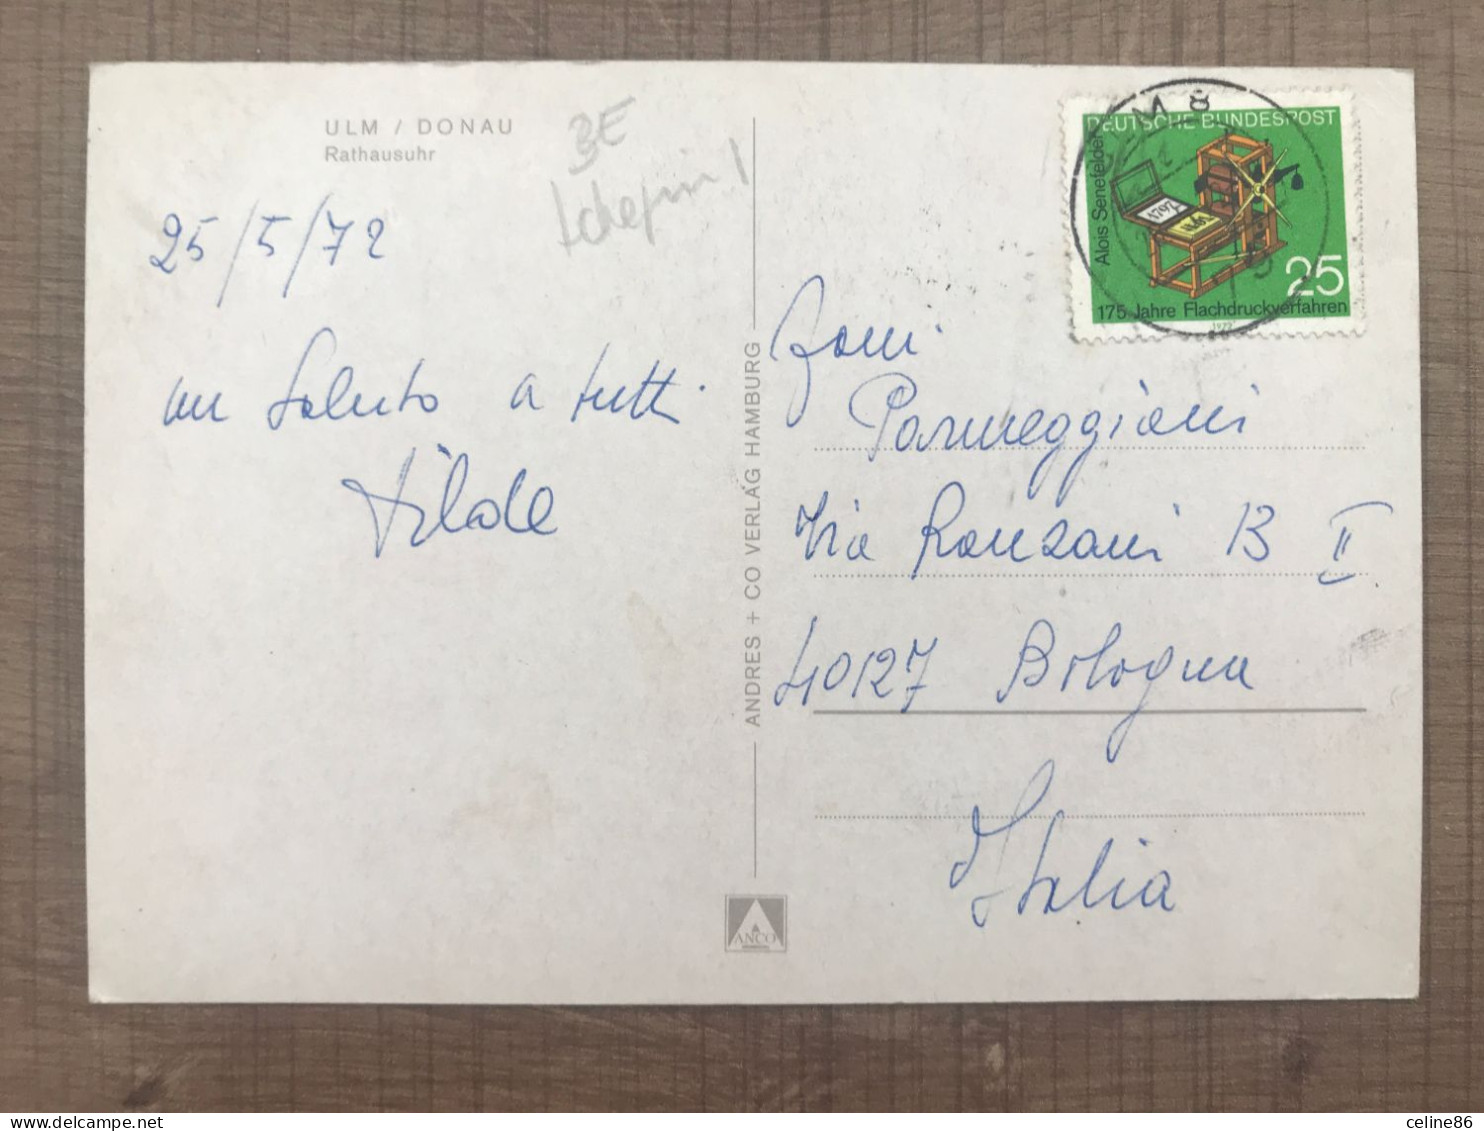 ULM / DONAU
Rathausuhr
3E
25/5/72
un Saluto a tutti.
Tilde
ANDRES + CO VERLAG HAMBURG
ANCO
M 8
DEUTSCHE BUNDESPOST
Alois Senefelder
1797
25
175 Jahre Flachdruckverfahren
1972
Fam.
Parmeggiani
Via Ronzani 13 II
40127 Bologna
Italia
www.delcampe.net
celine86